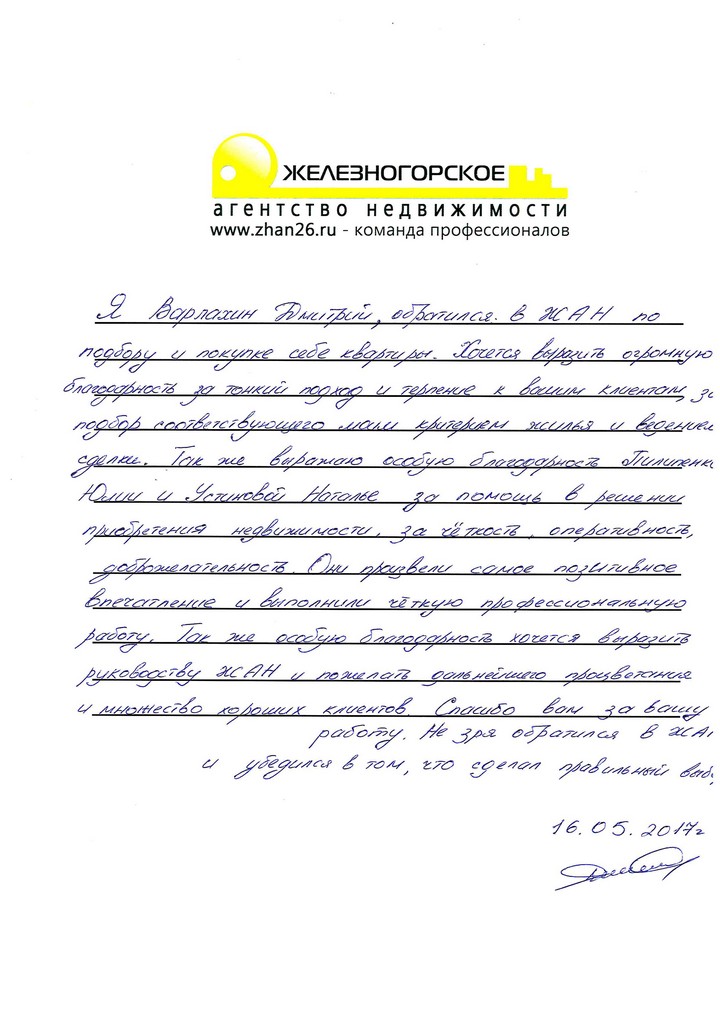 ЖЕЛЕЗНОГОРСКОЕ
агентство недвижимости
www.zhan26.ru - команда профессионалов
Я Варлахин Дмитрий, обратился в ЖАН по
подбору и покупке себе квартиры. Хочется выразить огромную
благодарность за тонкий подход и терпение к вашим клиентам, за
подбор соответствующего моим критерием жилья и ведением
сделки. Так же выражаю особую благодарность Пилипенко
Юлии и Устиновой Наталье за помощь в решении
приобретения недвижимости, за чёткость, оперативность,
доброжелательность. Они прозвели самое позитивное
впечатление и выполнили чёткую профессиональную
работу. Так же особую благодарность хочется выразить
руководству ЖАН и пожелать дальнейшего процветания
и множество хороших клиентов. Спасибо вам за вашу
работу. Не зря обратился в ЖАН
и убедился в том, что сделал правильный выбо
16.05.2017г